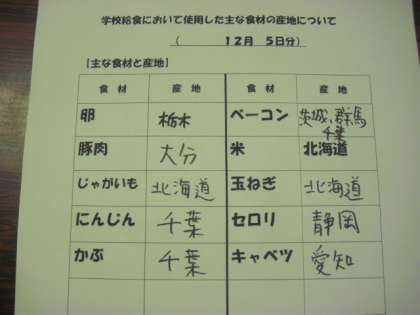 学校給食において使用した主な食材の産地について
( 12月 5日分)
[主な食材と産地]
食材 産地 食材 産地
卵 栃木 ベーコン 茨城、群馬 千葉
豚肉 大分 米 北海道
じゃがいも 北海道 玉ねぎ 北海道
にんじん 千葉 セロリ 静岡
かぶ 千葉 キャベツ 愛知